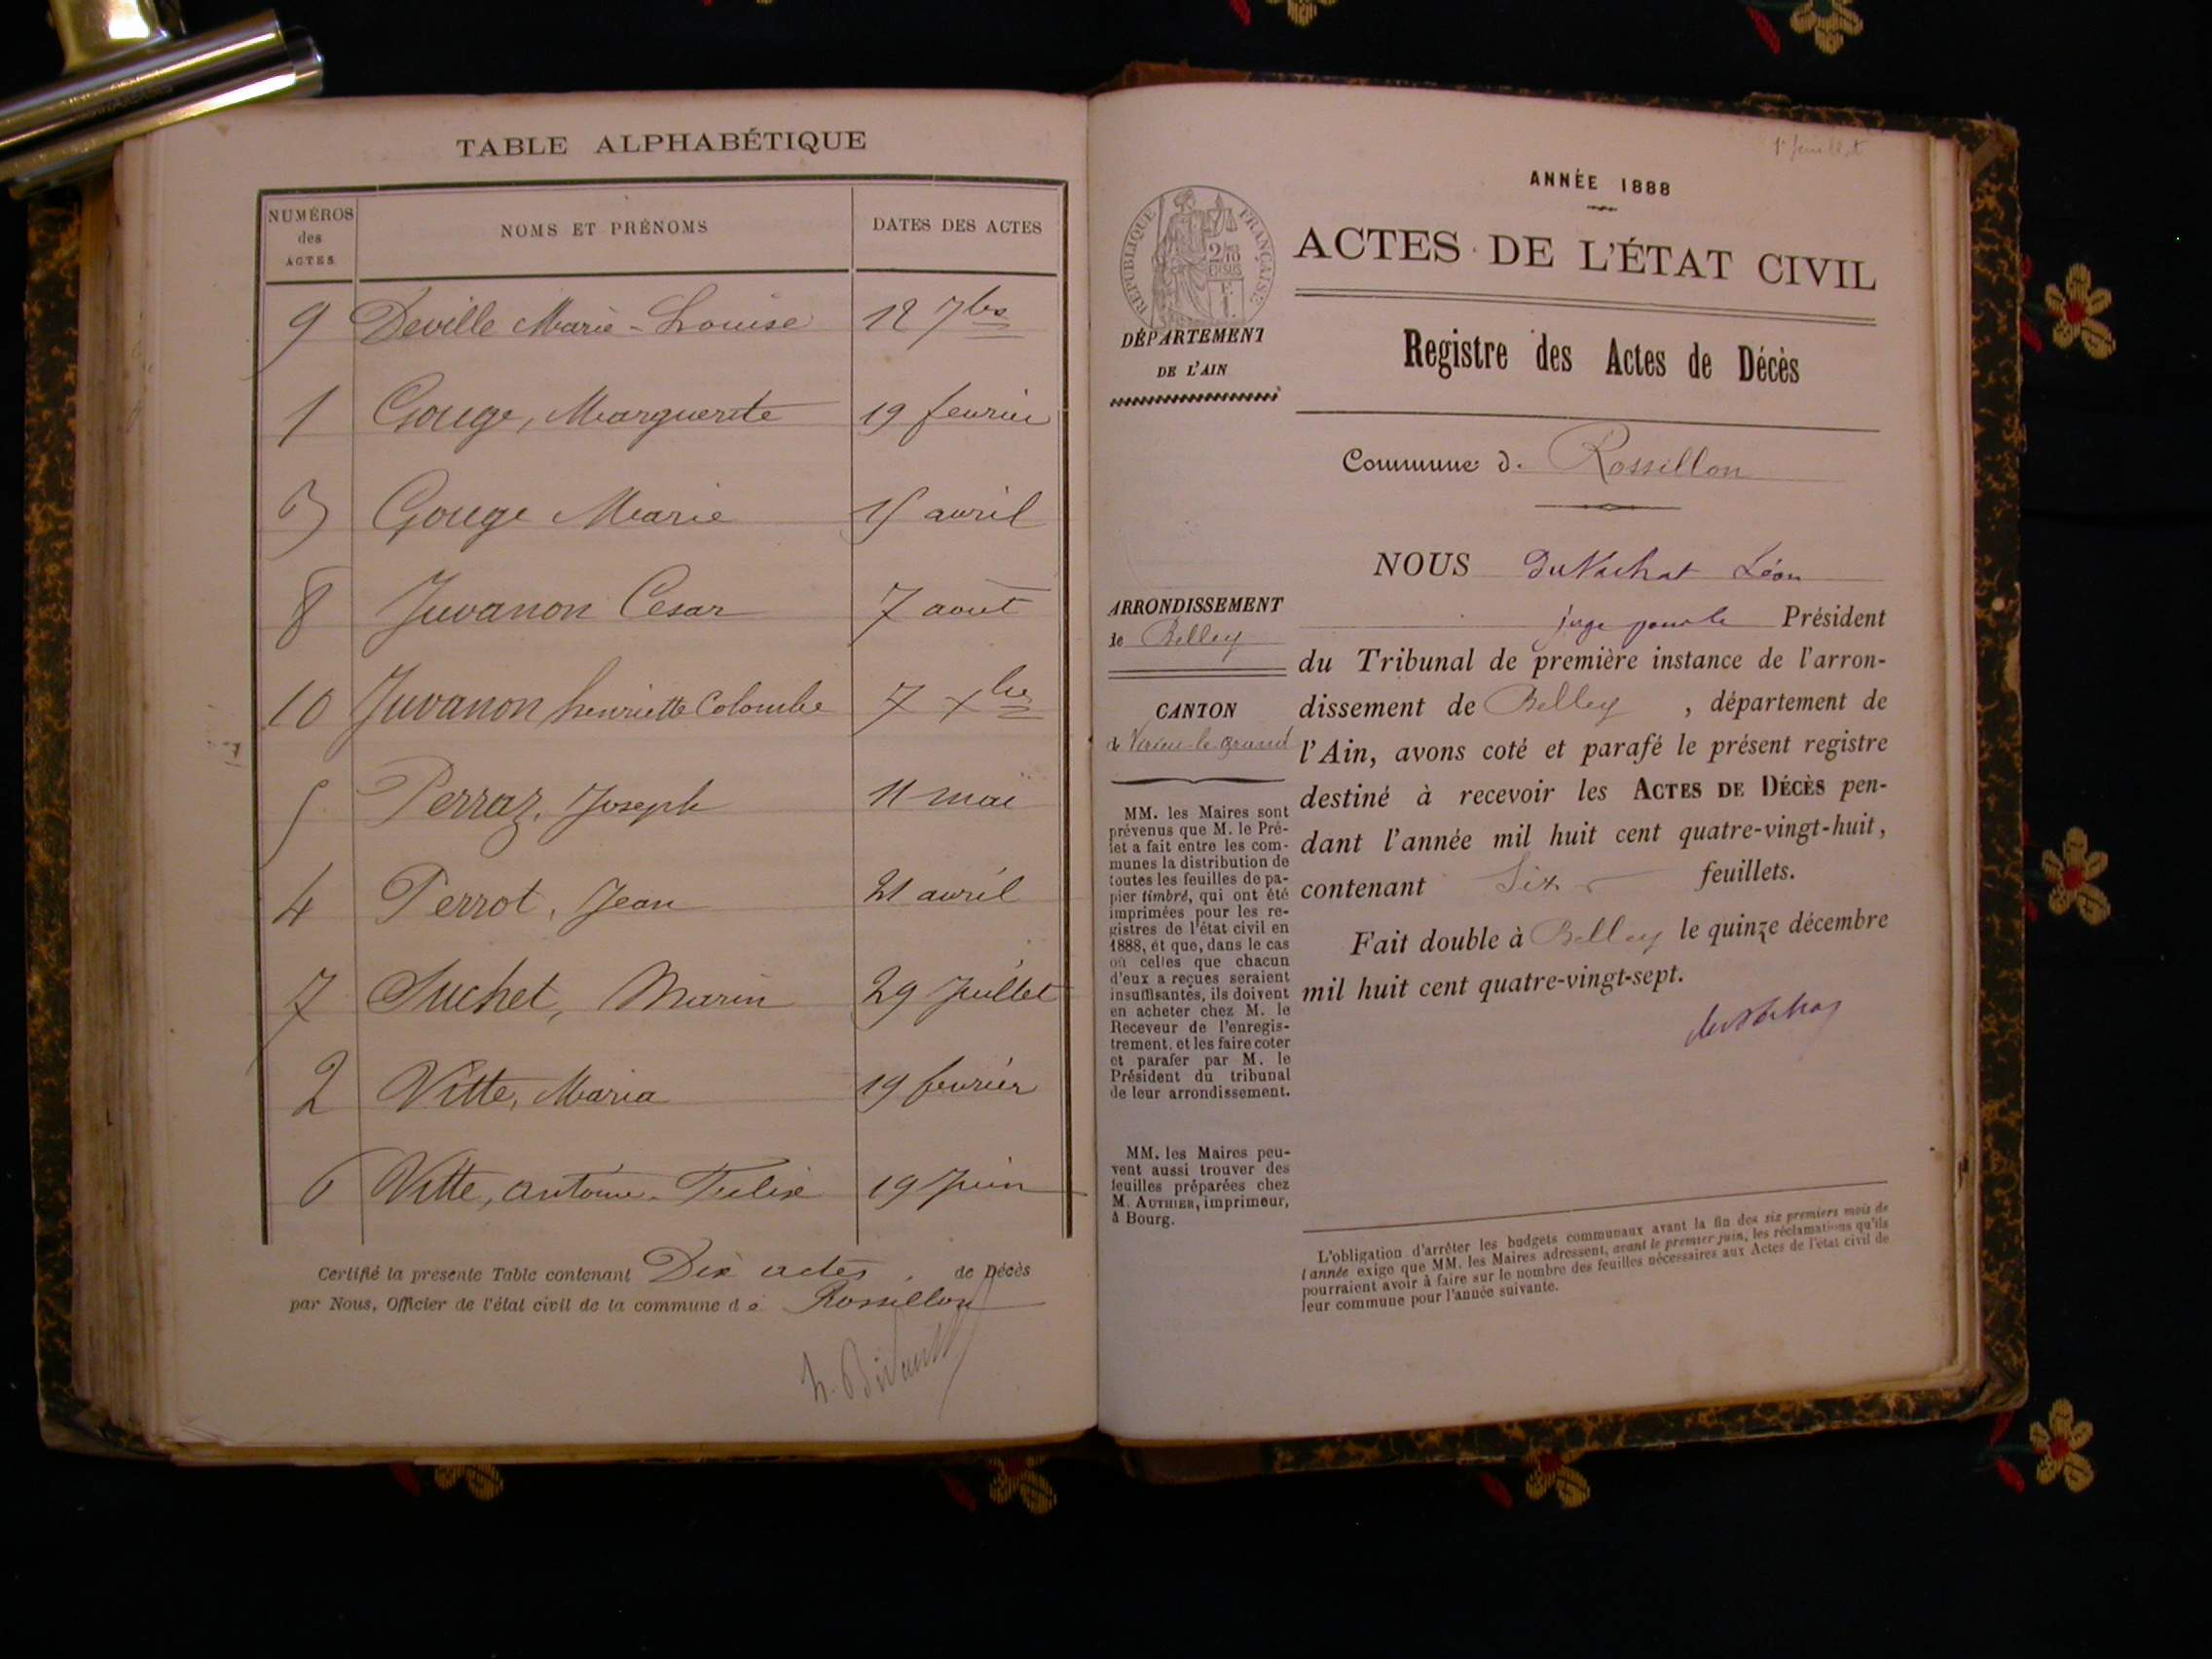 TABLE ALPHABÉTIQUE
NUMÉROS des ACTES NOMS ET PRÉNOMS DATES DES ACTES
9 Deville Marie-Louise 12 7bre
1 Gouge, Marguerite 19 fevrier
3 Gouge Marie 15 avril
8 Juvanon Cesar 7 août
10 Juvanon henriette Colombe 7 Xbre
5 Perraz, Joseph 11 mai
4 Perrot, Jean 21 avril
7 Suchet, Marin 29 Juillet
2 Vitte, Maria 19 fevrier
6 Vitte, antoine 19 Juin
Certifié la présente Table contenant Dix actes de Décès
par Nous, Officier de l'état civil de la commune de Rossillon
1er feuillet
ANNÉE 1888
ACTES DE L'ÉTAT CIVIL
Registre des Actes de Décès
Commune de Rossillon
RÉPUBLIQUE FRANÇAISE
DÉPARTEMENT
DE L'AIN
ARRONDISSEMENT
de Belley
CANTON
de Virieu-le-grand
MM. les Maires sont
prévenus que M. le Pré-
fet a fait entre les com-
munes la distribution de
toutes les feuilles de pa-
pier timbré, qui ont été
imprimées pour les re-
gistres de l'état civil en
1888, et que, dans le cas
où celles que chacun
d'eux a reçues seraient
insuffisantes, ils doivent
en acheter chez M. le
Receveur de l'enregis-
trement, et les faire coter
et parafer par M. le
Président du tribunal
de leur arrondissement.
MM. les Maires peu-
vent aussi trouver des
feuilles préparées chez
M. AUTHIER, imprimeur,
à Bourg.
NOUS duVachat Léon
juge pour le Président
du Tribunal de première instance de l'arron-
dissement de Belley, département de
l'Ain, avons coté et parafé le présent registre
destiné à recevoir les ACTES DE DÉCÈS pen-
dant l'année mil huit cent quatre-vingt-huit,
contenant Six feuillets.
Fait double à Belley le quinze décembre
mil huit cent quatre-vingt-sept.
duVachat
L'obligation d'arrêter les budgets communaux avant la fin des six premiers mois de
l'année exige que MM. les Maires adressent, avant le premier juin, les réclamations qu'ils
pourraient avoir à faire sur le nombre des feuilles nécessaires aux Actes de l'état civil de
leur commune pour l'année suivante.